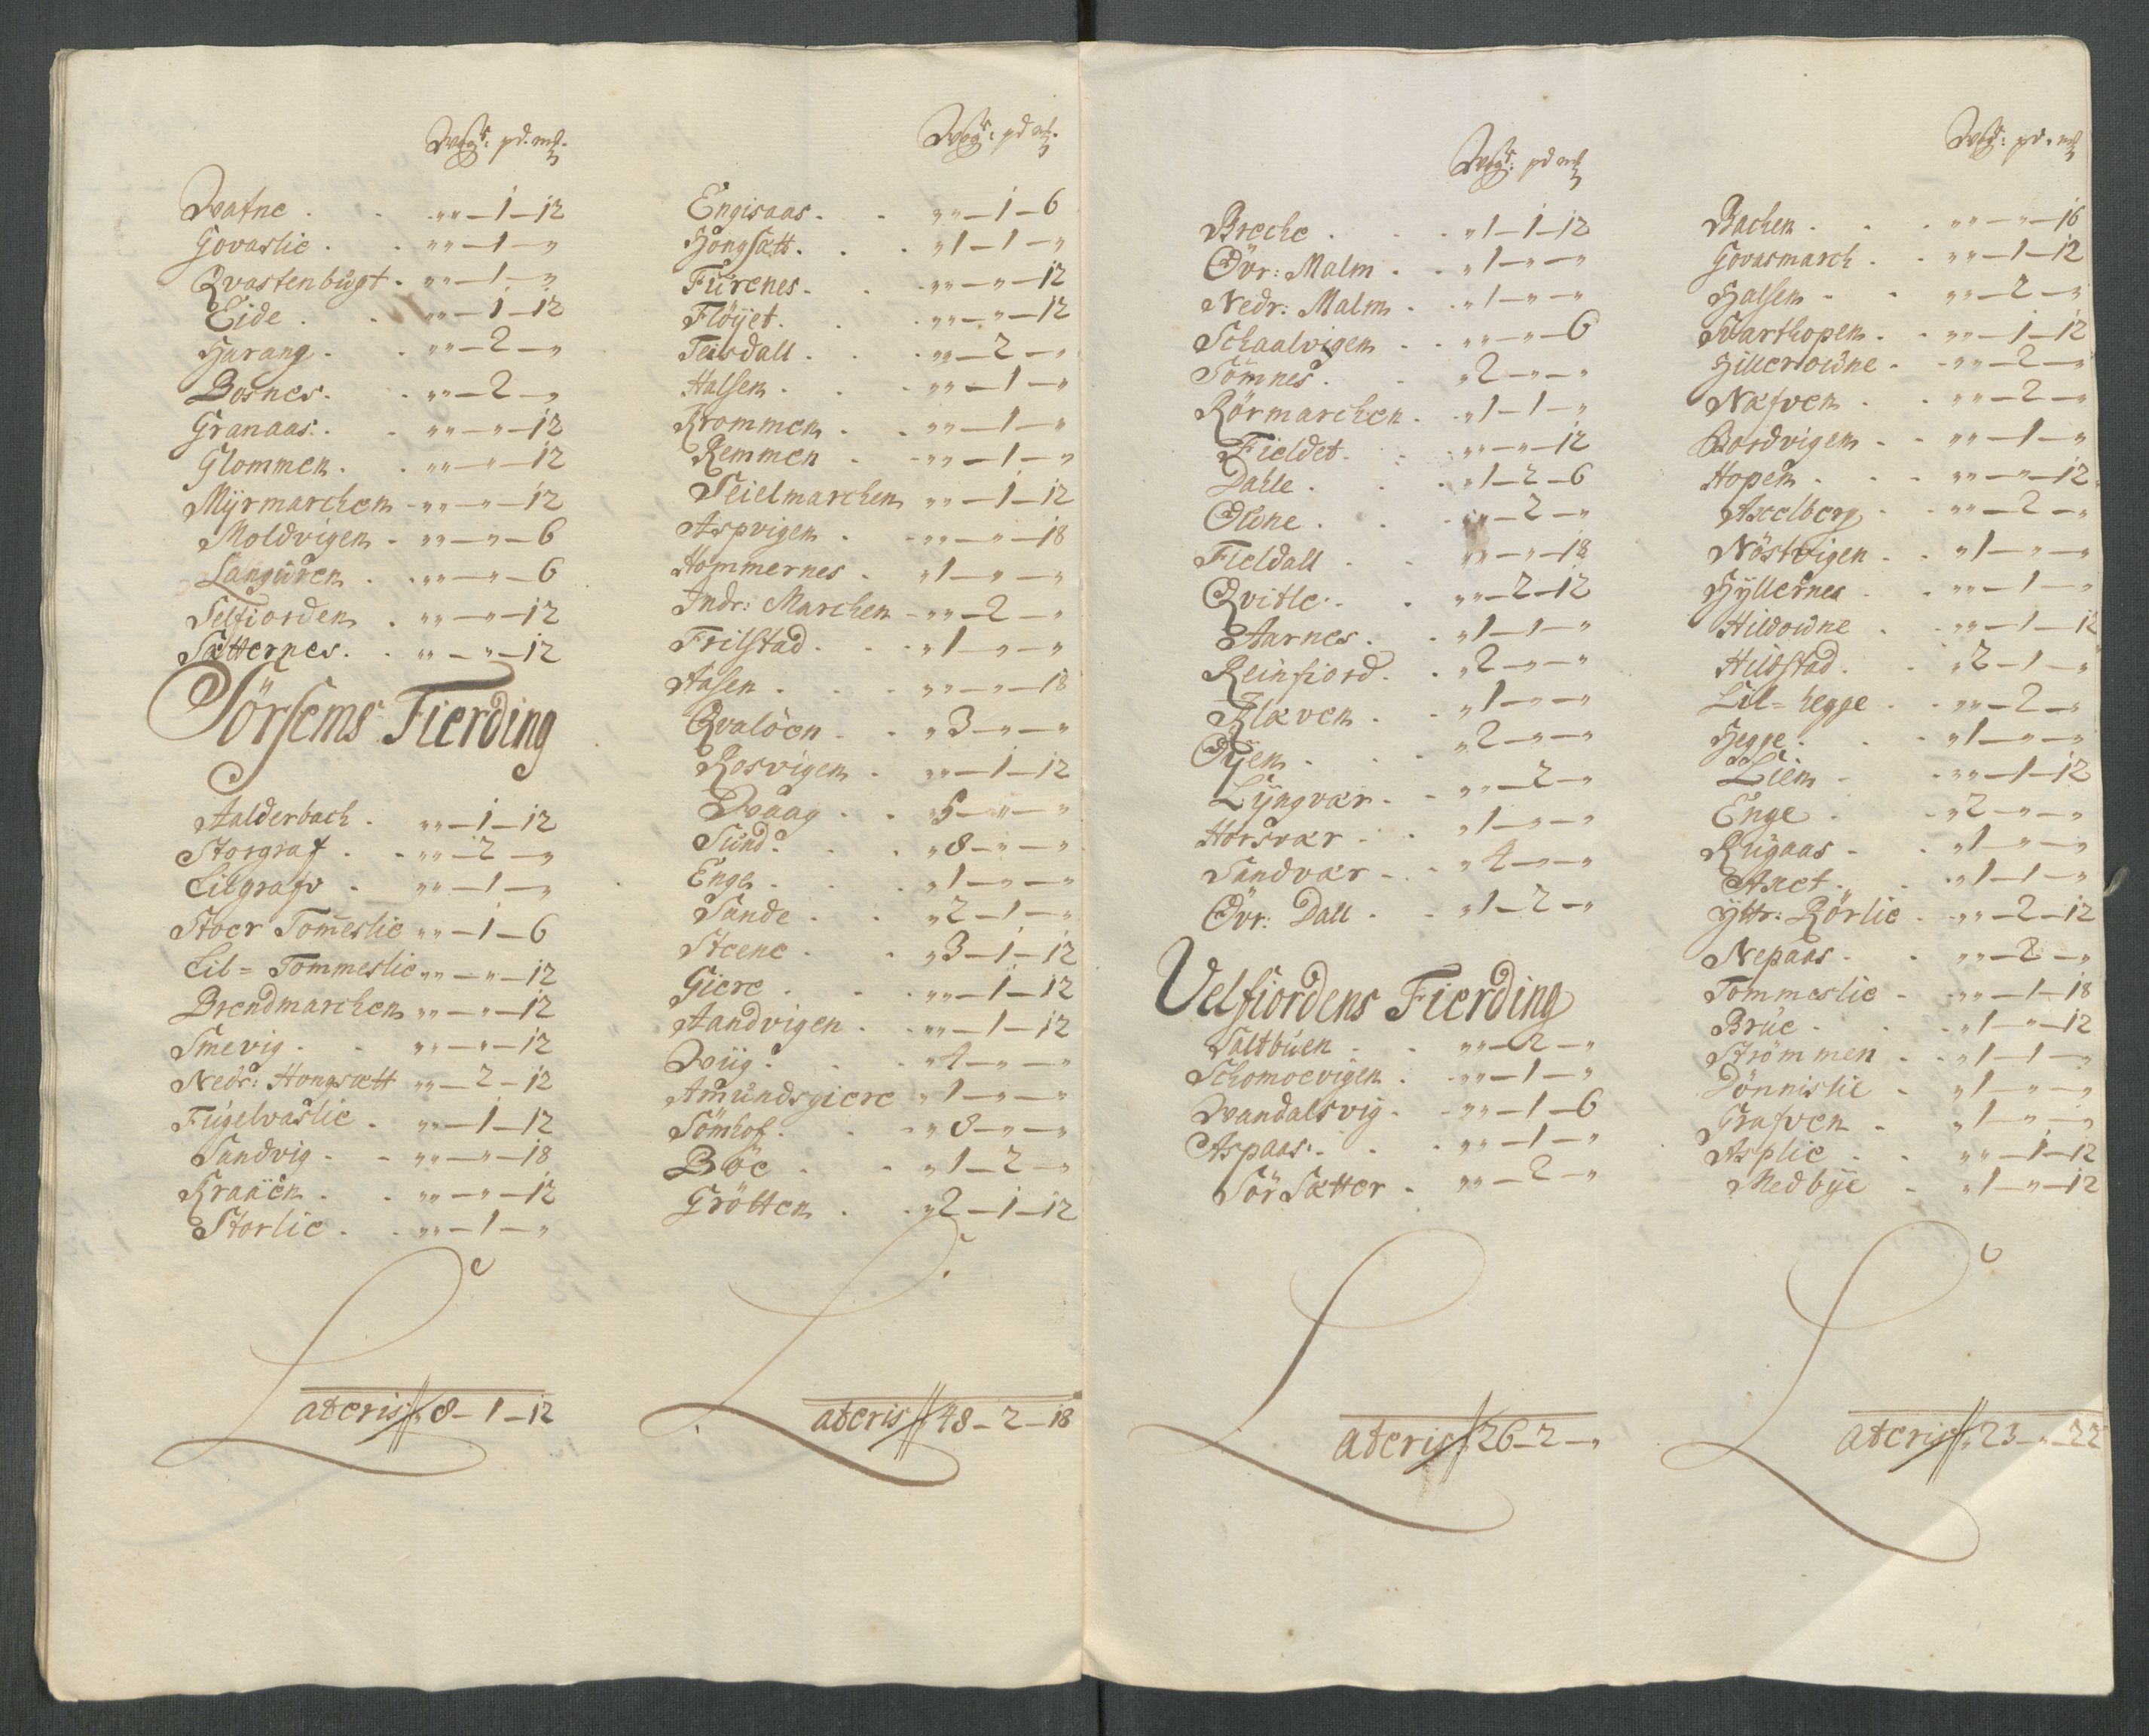 Wog: pd. mk.
Wafne . . „„ — 1 — 12
Govaslie . . „„ — 1 — „
Qvastenbugt . „„ — 1 — „
Eide . . „„ — 1 — 12
Harang . . „„ — 2 — „
Bosnes . . „„ — 2 — „
Granaas . . „„ — „ — 12
Glommen . . „„ — „ — 12
Mÿrmarchen „„ — „ — 12
Moldvigen . „„ — „ — 6
Languren . . „„ — „ — 6
Selfiorden . „„ — „ — 12
Sætternes . . „„ — „ — 12
Sörsems Fierding
Aalderbach . „„ — 1 — 12
Storgraf . . „„ — 2 — „
Lilgrafv . „„ — 1 — „
Stoer Tom̄eslie „„ — 1 — 6
Lil = Tommeslie „„ — „ — 12
Brendmarchen „„ — „ — 12
Smevig . . „„ — „ — 12
Nedr: Hongsætt „„ — 2 — 12
Fugelvaslie . „„ — 1 — 12
Sandvig . . „„ — „ — 18
Kraaen . . „„ — „ — 12
Storlie . . „„ — 1 — „
Lateris „ 8 — 1 — 12
Wog: pd mk.
Engisaas . . „„ — 1 — 6
Hongsætt . . „ 1 — 1 — „
Furenes . . „„ — „ — 12
Flöÿet . . „„ — „ — 12
Teisdall . . „„ — 2 — „
Halsen . . „„ — 1 — „
Krommen . . „„ — 1 — „
Remmen . „„ — 1 — „
Teielmarchen „„ — 1 — 12
Aspvigen . „„ — „ — 18
Hommernes . „ 1 — „ — „
Indr: Marchen „„ — 2 — „
Frilstad . . „ 1 — „ — „
Aasen . . „„ — „ — 18
Qvalöen . . „ 3 — „ — „
Rosvigen . „„ — 1 — 12
Waag . . „ 5 — „ — „
Sund . . „ 8 — „ — „
Enge . . „ 1 — „ — „
Sande . . „ 2 — 1 — „
Steene . . „ 3 — 1 — 12
Giere . . „„ — 1 — 12
Aandvigen . „„ — 1 — 12
Wiig . . „ 4 — „ — „
Amundsgiere „ 1 — „ — „
Sömhof . . „ 8 — „ — „
Böe . . „ 1 — 2 — „
Grötten . . „ 2 — 1 — 12
Lateris „ 48 — 2 — 18
Wog: pd mk
Breche . . „ 1 — 1 — 12
Övr: Malm . . „ 1 — „ — „
Nedr: Malm . . „ 1 — „ — „
Schaalvigen . . „„ — „ — 6
Sömnes . . „ 2 — „ — „
Rörmarchen . „ 1 — 1 — „
Fieldet . . „„ — „ — 12
Dahle . . „ 1 — 2 — 6
Oldne . . „„ — 2 — „
Fieldall . . „„ — „ — 18
Qvitle . . „„ — 2 — 12
Aarnes . . „ 1 — 1 — „
Reinfiord . . „ 2 — „ — „
Klæven . . „ 1 — „ — „
Öÿen . . „ 2 — „ — „
Lÿngvær . . „„ — 2 — „
Horsvær . . „ 1 — „ — „
Sandvær . . „ 4 — „ — „
Övr: Dall . . „ 1 — 2 — „
Velfiordens Fierding
Saltbuen . . „„ — 2 — „
Schomoevigen . „„ — 1 — „
Wandalsvig . „„ — 1 — 6
Aspaas . . „„ — 1 — „
Sör Sætter . „„ — 2 — „
Lateris „ 26 — 2 — „
Wog: pd. mk
Bachen . . „„ — „ — 16
Govasmarch . . „„ — 1 — 12
Halsen . . „„ — 2 — „
Svarthopen . . „„ — 1 — 12
Hillerowne . „„ — 2 — „
Næfven . . „„ — 2 — „
Bordvigen . . „„ — 1 — „
Hopen . . „„ — „ — 12
Axelberg . „„ — 2 — „
Nöstvigen . . „ 1 — „ — „
Hÿllernes . „„ — 1 — „
Hildowne . „„ — 1 — 12
Hildstad . . „ 2 — 1 — „
Lil = hegge . . „„ — 2 — „
Hegge . . „ 1 — „ — „
Liem . „„ — 1 — 12
Enge . . „ 2 — „ — „
Rugaas . . „ 1 — „ — „
Anet . . „ 1 — 1 — „
Yttr: Rörlie . „„ — 2 — 12
Nepaas . . „„ — 2 — „
Tommeslie . „„ — 1 — 18
Brue . . „ 1 — „ — 12
Strömmen . . „ 1 — 1 — „
Dönnislie . „ 1 — „ — „
Grafven . „ 1 — „ — „
Asplie . . „„ — 1 — 12
Medbÿe . „ 1 — „ — 12
Lateris „ 23 — „ — 22